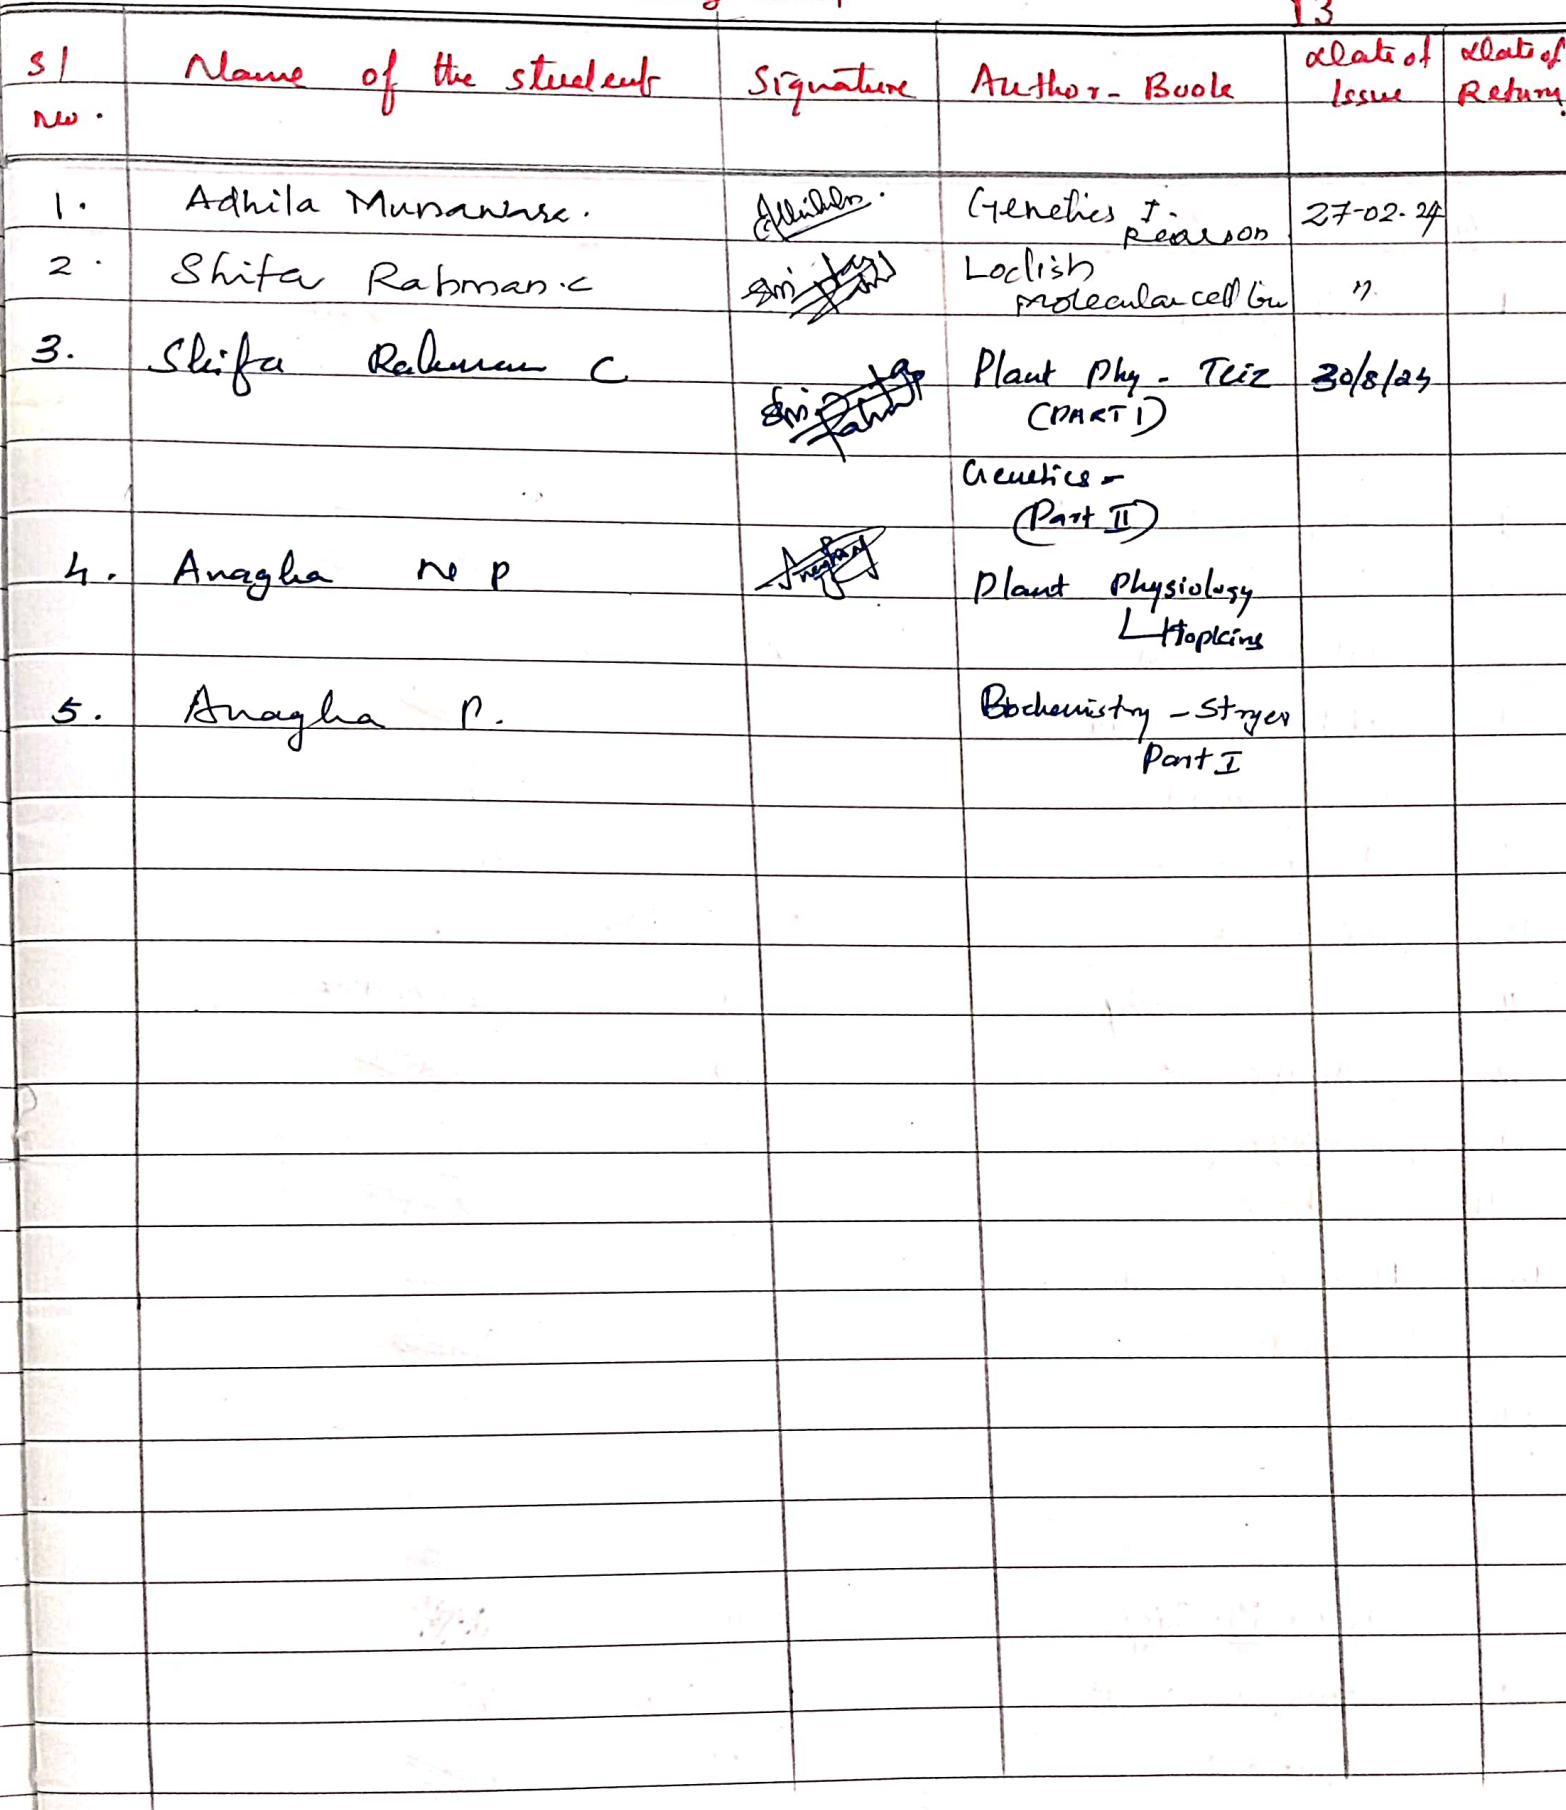 13
Sl No. Name of the student Signature Author - Book Date of Issue Date of Return.
1. Adhila Munawara. Genetics I. 27-02-24
Pearson
2. Shifa Rahman.C Lodish "
molecular cell bio
3. Shifa Rahman C Plant Phy - Teiz 30/8/24
(PART I)
Genetics -
(Part II)
4. Anagha N P Plant Physiology
Hopkins
5. Anagha P. Biochemistry - Stryer
Part I